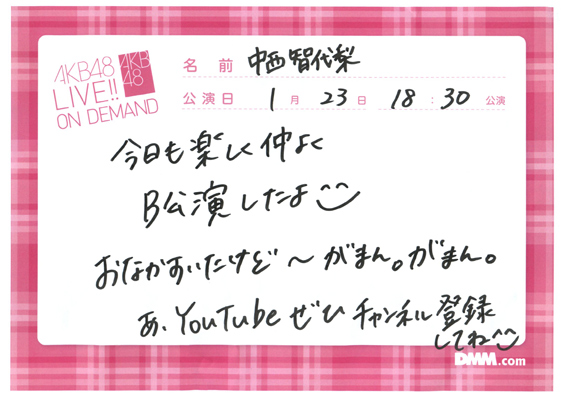 AKB48
LIVE!!
ON DEMAND
AKB
48
名前 中西智代梨
公演日 1月23日 18:30公演
今日も楽しく仲よく
B公演したよ
おなかすいたけど〜がまん。がまん。
あ、YouTubeぜひチャンネル登録
してね^^
DMM.com